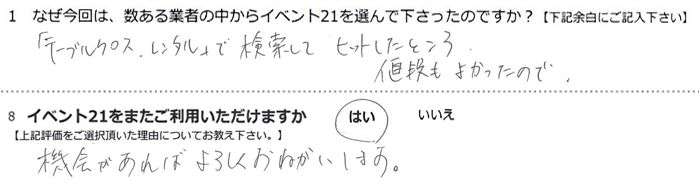 1 なぜ今回は、数ある業者の中からイベント21を選んで下さったのですか？【下記余白にご記入下さい】
「テーブルクロス．レンタル」で検索して ヒットしたところ
値段もよかったので．
8 イベント21をまたご利用いただけますか はい いいえ
【上記評価をご選択頂いた理由についてお教え下さい。】
機会があればよろしくおねがいします。